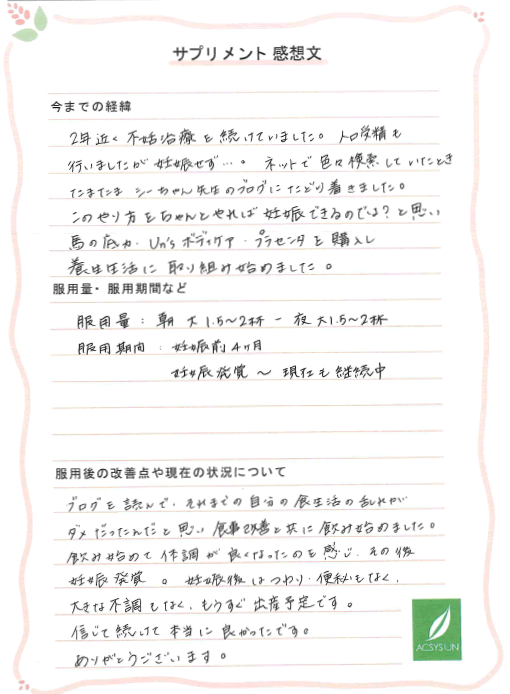 サプリメント 感想文
今までの経緯
2年近く不妊治療を続けていました。人口受精も
行いましたが妊娠せず…。ネットで色々検索していたとき
たまたま シーちゃん先生のブログにたどり着きました。
このやり方をちゃんとやれば妊娠できるのでは?と思い
馬の底力・Un's ボディケア・プラセンタを購入し
養生生活に取り組み始めました。
服用量・服用期間など
服用量:朝 大1.5~2杯 - 夜 大1.5~2杯
服用期間:妊娠前4ヶ月
妊娠発覚 ~ 現在も継続中
服用後の改善点や現在の状況について
ブログを読んで、それまでの自分の食生活の乱れが
ダメだったんだと思い食事改善と共に飲み始めました。
飲み始めて体調が良くなったのを感じ、その後
妊娠発覚。妊娠後はつわり・便秘もなく、
大きな不調もなく、もうすぐ出産予定です。
信じて続けて本当に良かったです。
ありがとうございます。
ACSYSUN